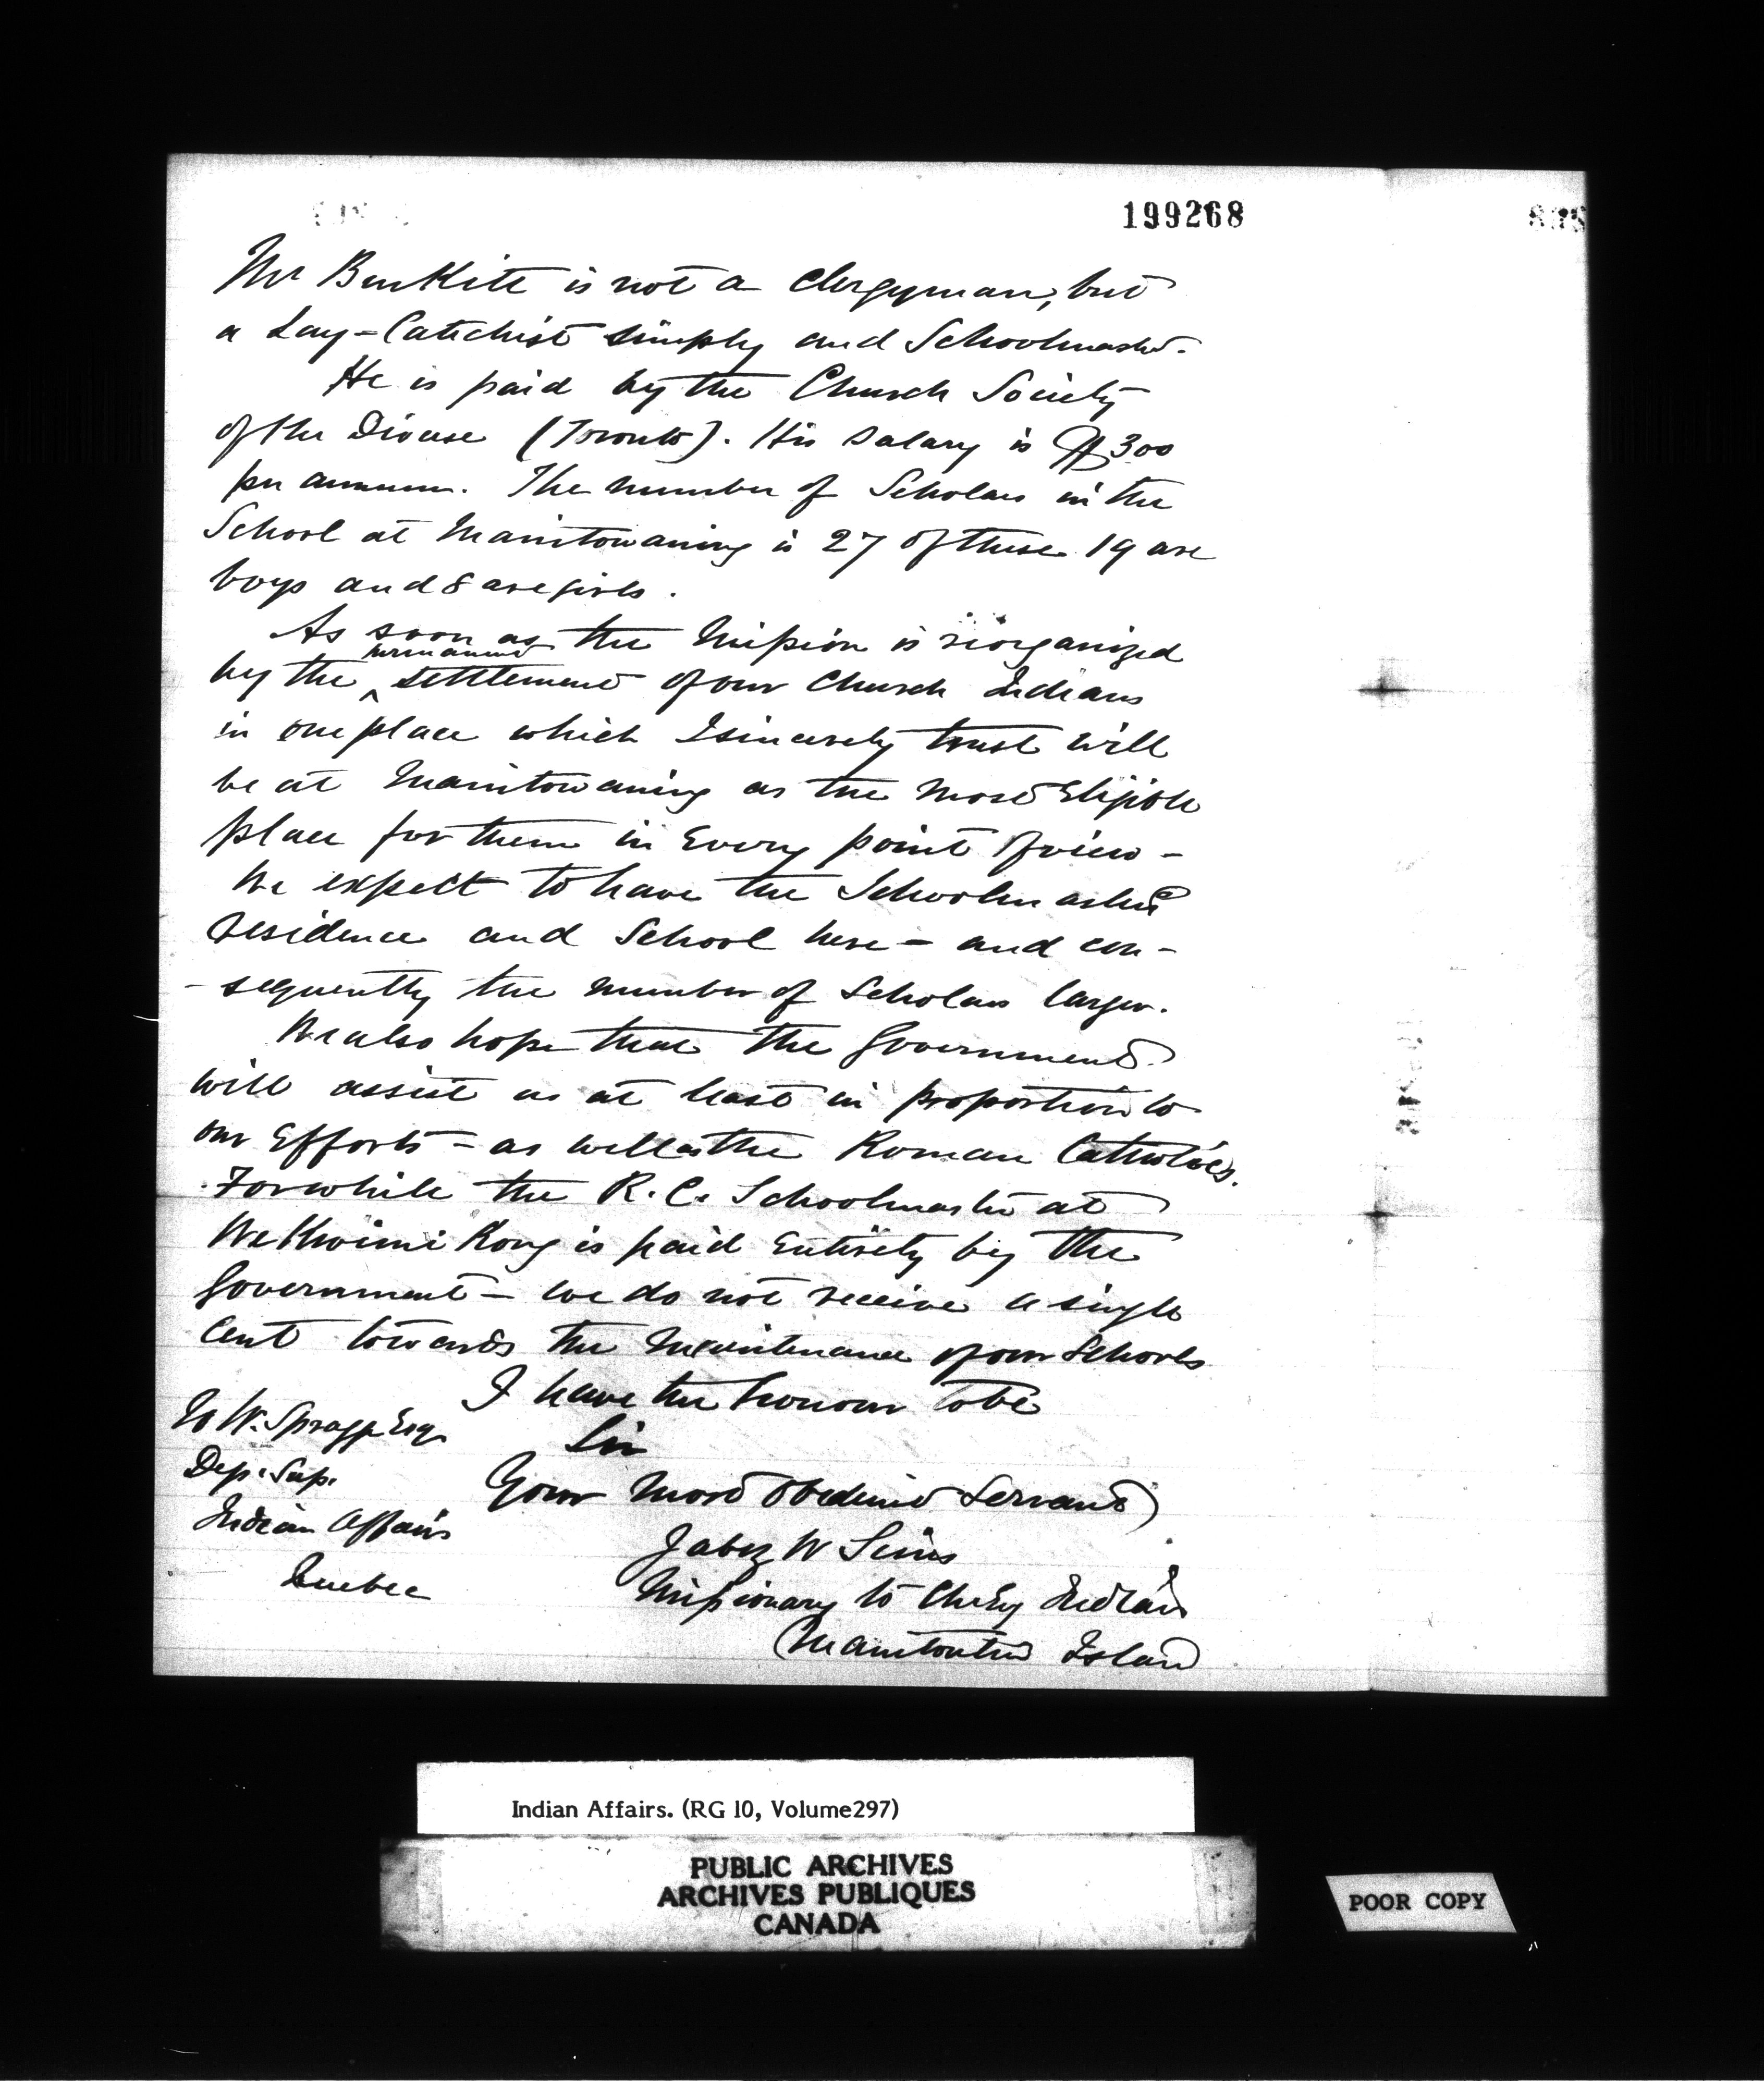 199268
Mr Burkitt is not a Clergyman, but
a Lay-Catechist simply and Schoolmaster.
He is paid by the Church Society
of the Diocese (Toronto). His Salary is $300
per annum. The number of Scholars in the
School at Manitowaning is 27 of these 19 are
boys and 8 are girls.
As soon as the Mission is reorganized
by the ^permanent settlement of our Church Indians
in one place which I sincerely trust will
be at Manitowaning as the most Eligible
place for them in Every point of view -
We expect to have the Schoolmaster's
residence and School here - and con-
-sequently the number of Scholars larger.
We also hope that the Government
will assist us at least in proportion to
our Efforts - as well as the Roman Catholics.
For while the R.C. Schoolmaster at
We Kwimi Kong is paid Entirely by the
Government - we do not receive a single
Cent towards the Maintenance of our Schools
I have the honour to be
Sir
Your most obedient Servant
Jabez W Sims
Missionary to Ch: Eng Indians
Manitoulin Island
To W. Spragge Esq
Dep. Sup.
Indian Affairs
Quebec
Indian Affairs. (RG 10, Volume297)
PUBLIC ARCHIVES
ARCHIVES PUBLIQUES
CANADA
POOR COPY